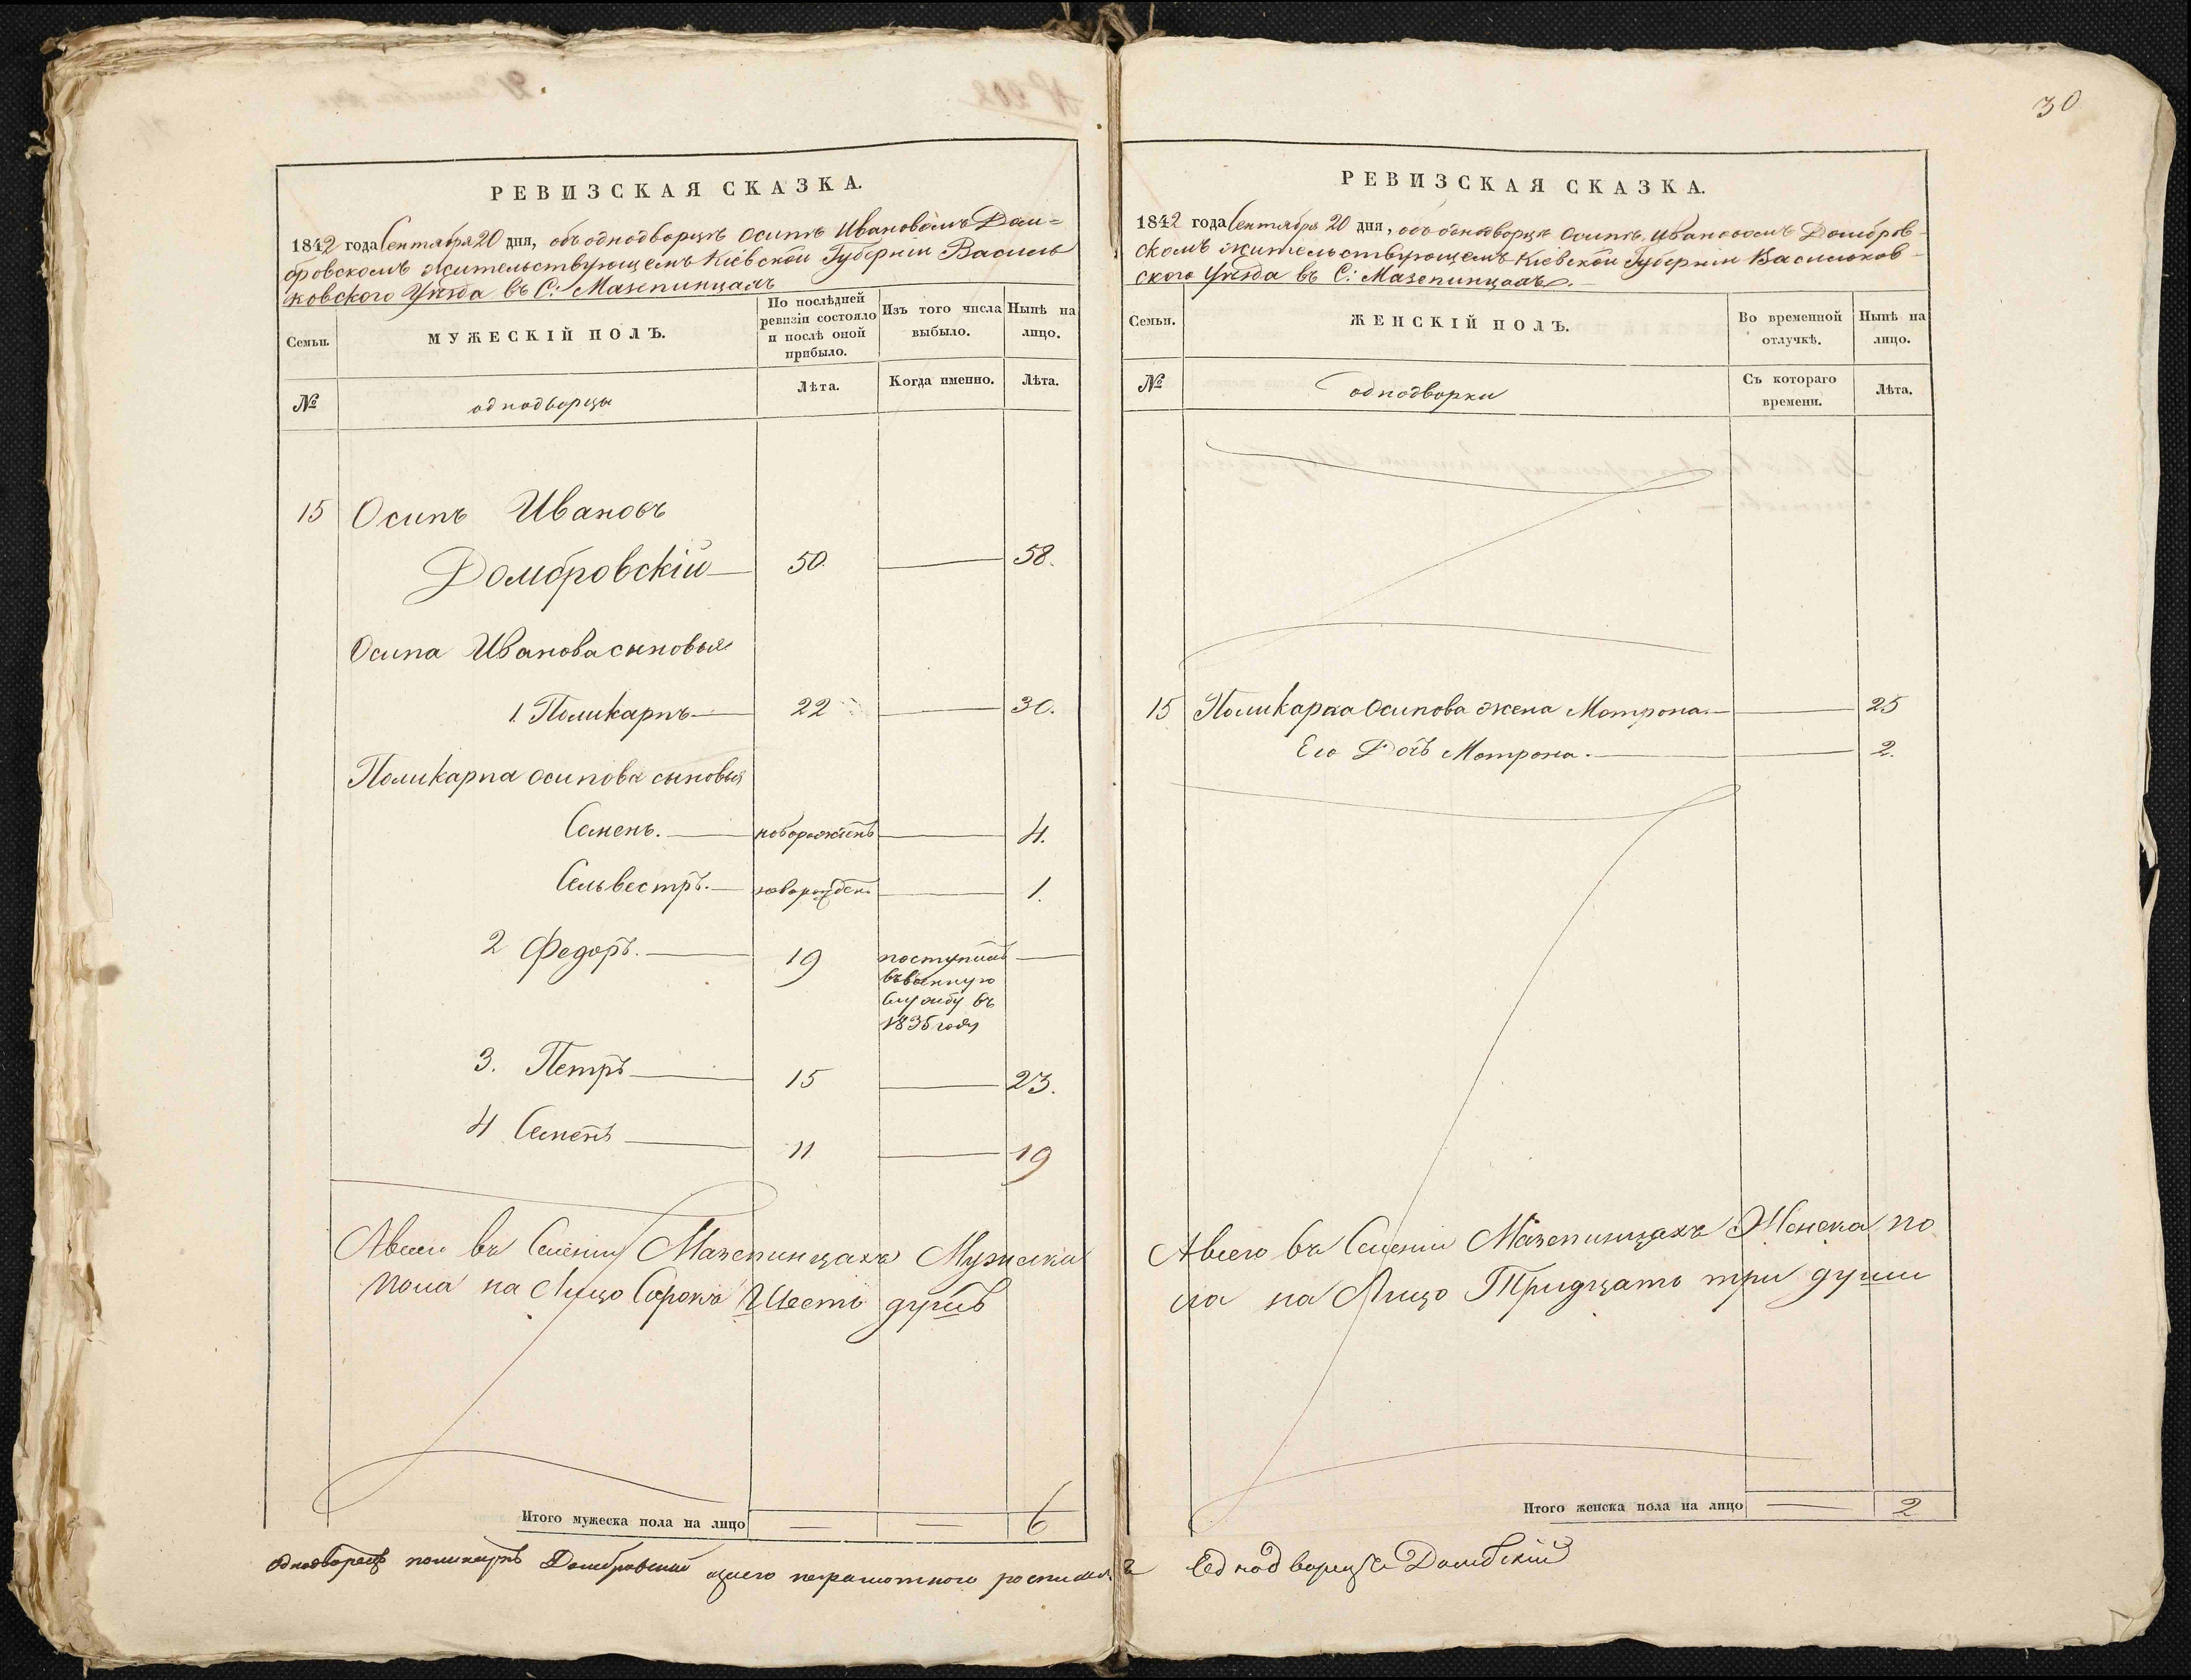 30
РЕВИЗСКАЯ СКАЗКА.
1842 года Сентября 20 дня, объ однодворцѣ Осипѣ Ивановомъ Дом=
бровскомъ жительствующемъ Кіевской Губерніи Василь
ковского Уѣзда въ С: Мазепинцахъ
Семьи.
МУЖЕСКІЙ ПОЛЪ.
По послѣдней ревизіи состояло и послѣ оной прибыло.
Изъ того числа выбыло.
Нынѣ на лицо.
№
однодворцы
Лѣта.
Когда именно.
Лѣта.
15 Осипъ Ивановъ
Домбровскій 50. 58.
Осипа Иванова сыновья
1. Поликарпъ 22 30.
Поликарпа Осипова сыновья
Семенъ. новорожденъ 4.
Сельвестръ. новорожденъ 1.
2 Федоръ. 19 поступилъ
въ военную
службу въ
1835 году
3. Петръ 15 23.
4 Семенъ 11 19
А всего въ Селеніи Мазепинцахъ Мужеска
пола на Лицо Сорокъ Шесть душъ
Итого мужеска пола на лицо 6
однодворецъ поликарпъ Домбровский неграмотного
РЕВИЗСКАЯ СКАЗКА.
1842 года Сентября 20 дня, объ однодворцѣ Осипѣ Ивановомъ Домбров-
скомъ жительствующемъ Кіевской Губерніи Васильков-
ского Уѣзда въ С: Мазепинцахъ.
Семьи.
ЖЕНСКІЙ ПОЛЪ.
Во временной отлучкѣ.
Нынѣ на лицо.
№
однодворки
Съ котораго времени.
Лѣта.
15 Поликарпа Осипова жена Матрона. 25
Его Дочь Матрона. 2.
А всего въ Селеніи Мазепинцахъ Женска по
ла на Лицо Тридцать три души
Итого женска пола на лицо 2